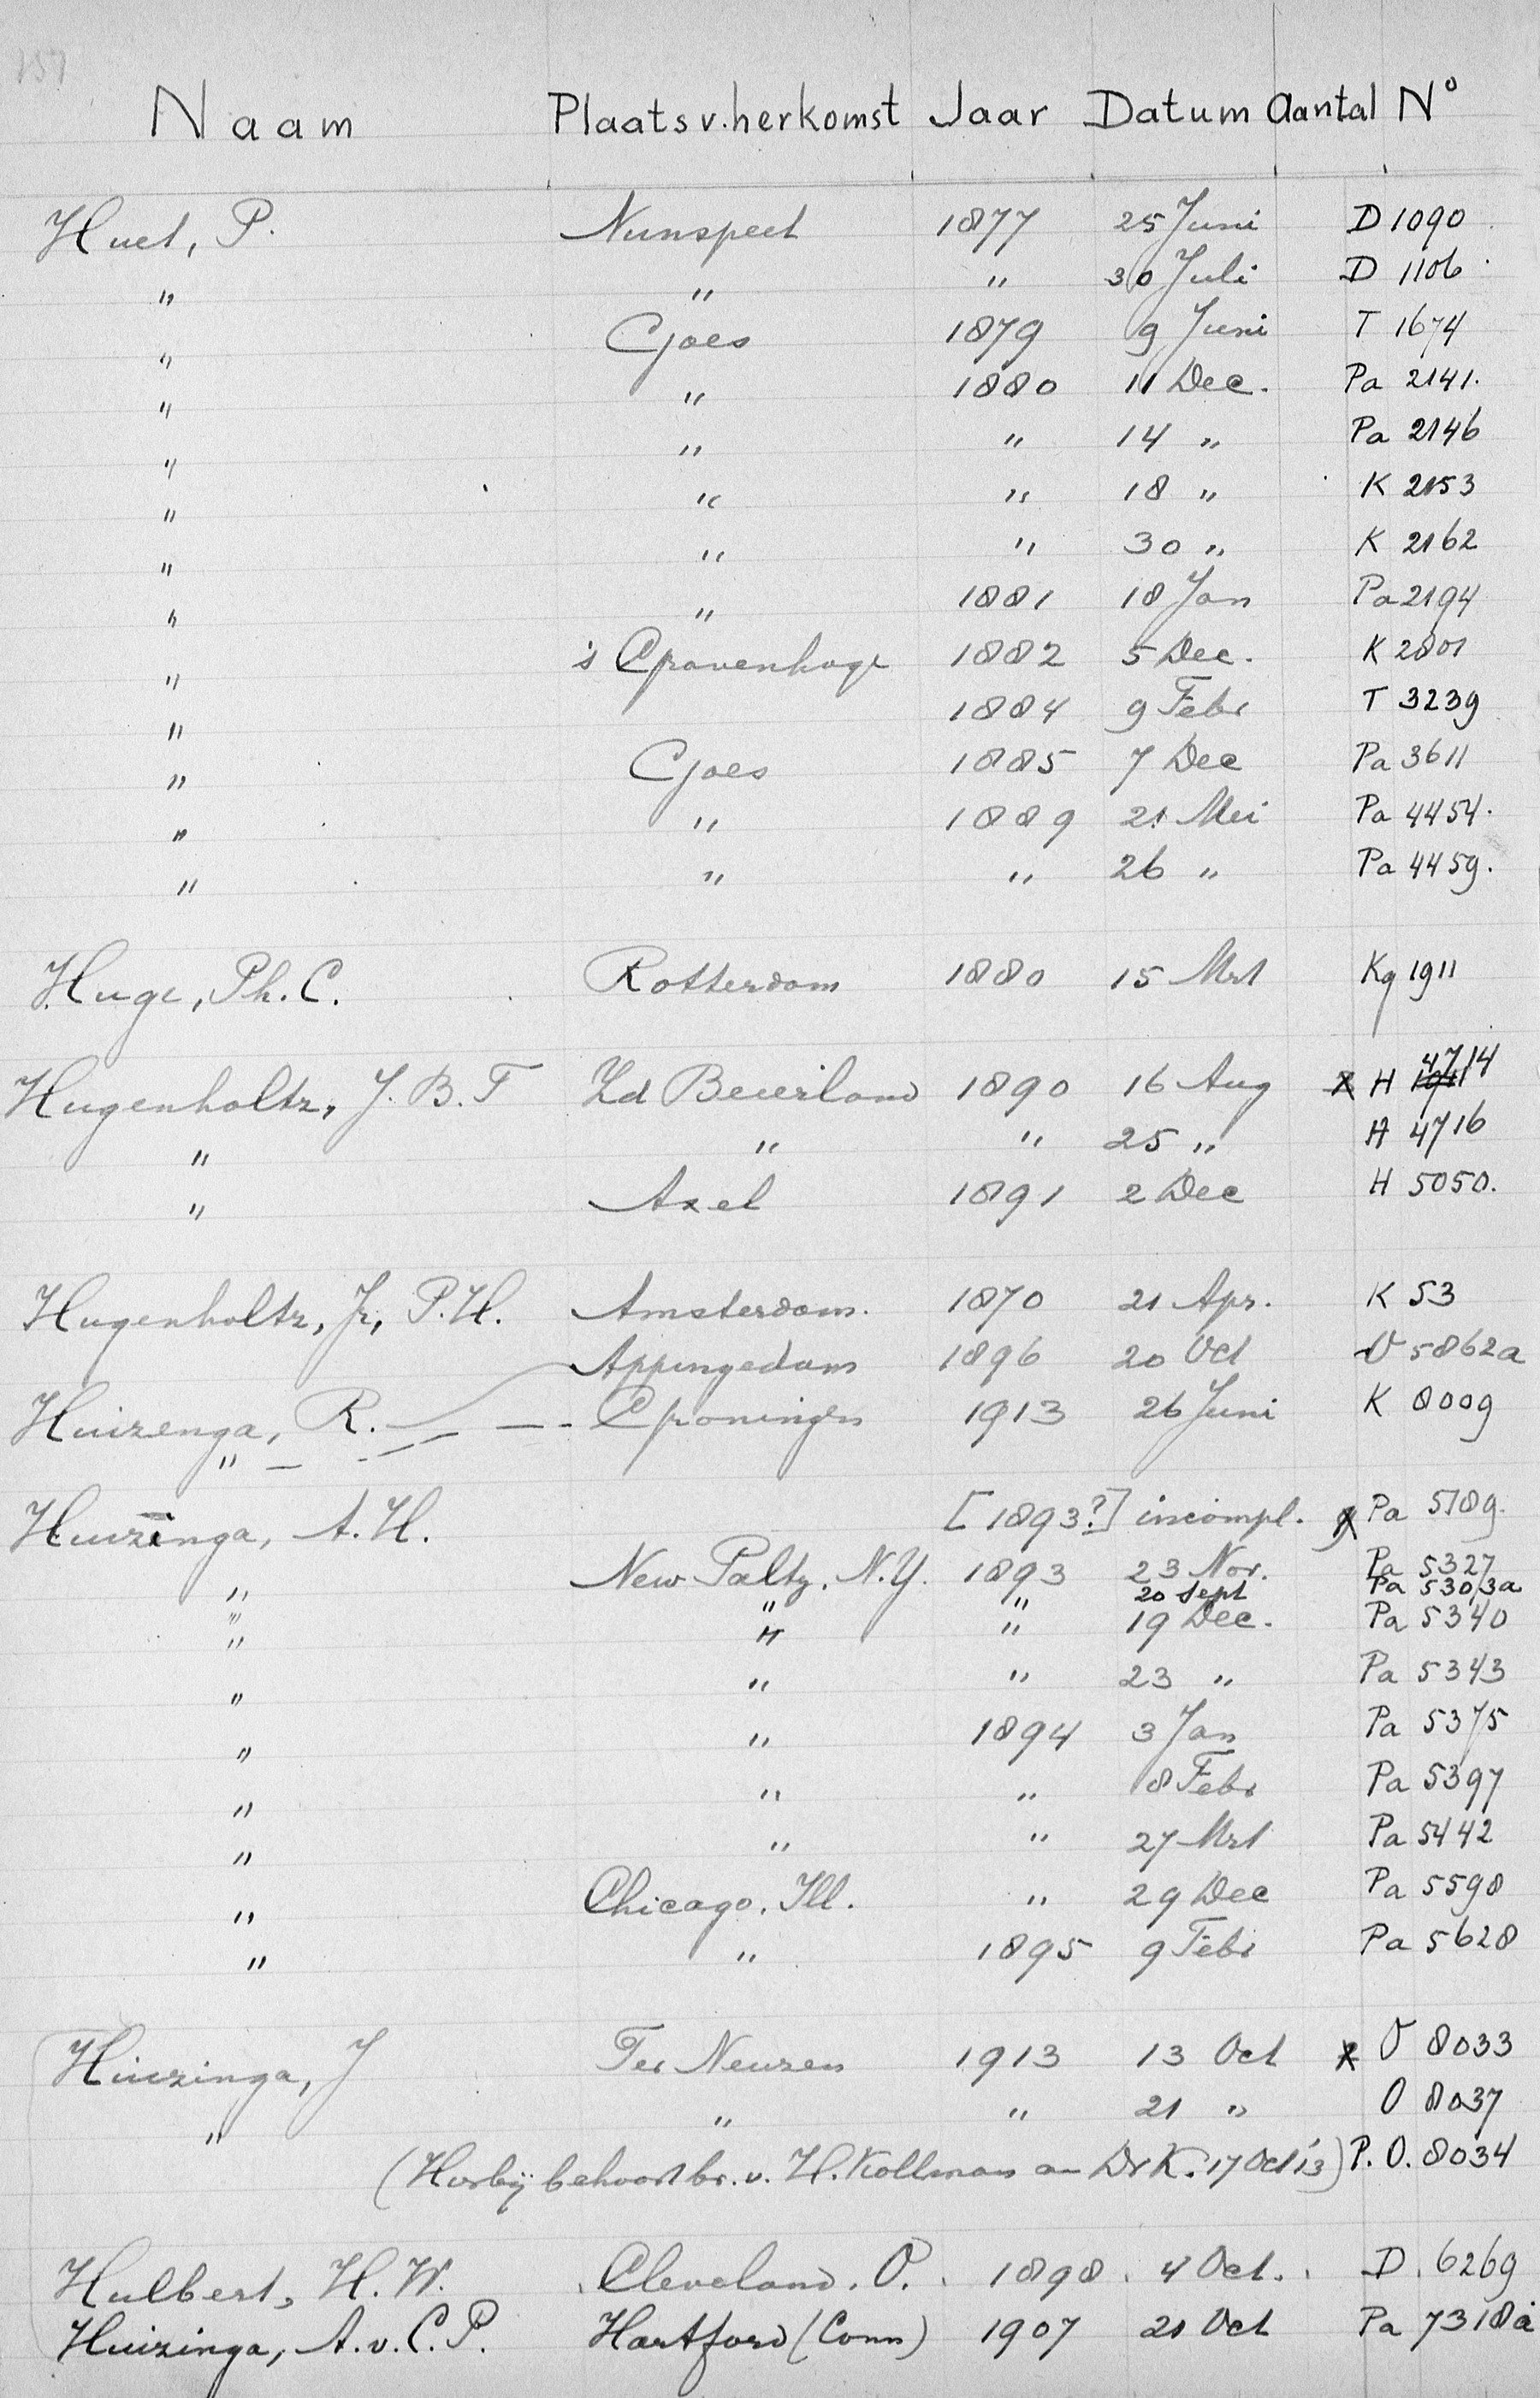 157
Naam Plaats v. herkomst Jaar Datum Aantal N°
Huet, P. Nunspeet 1877 25 Juni D 1090
" " " 30 Juli D 1106
" Goes 1879 9 Juni T 1674
" " 1880 11 Dec. Pa 2141.
" " " 14 " Pa 2146
" " " 18 " K 2153
" " " 30 " K 2162
" " 1881 18 Jan Pa 2194
" 's Gravenhage 1882 5 Dec. K 2801
" 1884 9 Febr T 3239
" Goes 1885 7 Dec Pa 3611
" " 1889 21 Mei Pa 4454.
" " " 26 " Pa 4459.
Huge, Ph. C. Rotterdam 1880 15 Mrt Kg 1911
Hugenholtz, J. B. T Zd Beierland 1890 16 Aug x H 4714
" " " 25 " H 4716
" Axel 1891 2 Dec H 5050.
Hugenholtz, Jr, P. H. Amsterdam. 1870 21 Apr. K 53
Appingedam 1896 20 Oct V 5862a
Huizenga, R. Groningen 1913 26 Juni K 8009
"
Huizinga, A. H. [1893?] incompl. x Pa 5189.
" New Paltz, N.Y. 1893 23 Nov. Pa 5327
" " " 20 Sept Pa 5303a
" " " 19 Dec. Pa 5340
" " " 23 " Pa 5343
" " 1894 3 Jan Pa 5375
" " " 8 Febr Pa 5397
" " " 27 Mrt Pa 5442
" Chicago, Ill. " 29 Dec Pa 5598
" " 1895 9 Febr Pa 5628
Huizinga, J Ter Neuzen 1913 13 Oct x O 8033
" " " 21 " O 8037
(Hierbij behoort br. v. H. Kollman an Dr K. 17 Oct '13) P. O. 8034
Hulbert, H. W. Cleveland, O. 1898. 4 Oct. D. 6269
Huizinga, A. v. C. P. Hartford (Conn) 1907 21 Oct Pa 7318a